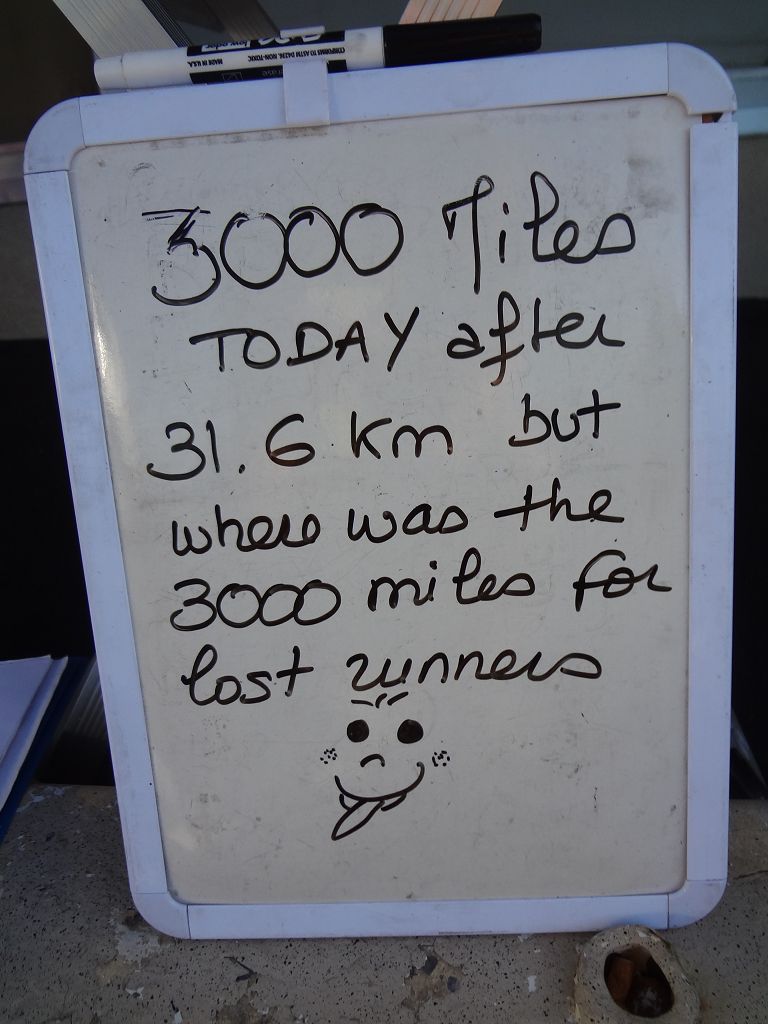 low odor
CONFORMS TO ASTM D4236. NON-TOXIC
MADE IN U.S.A.
3000 Miles
TODAY after
31.6 km but
where was the
3000 miles for
lost runners